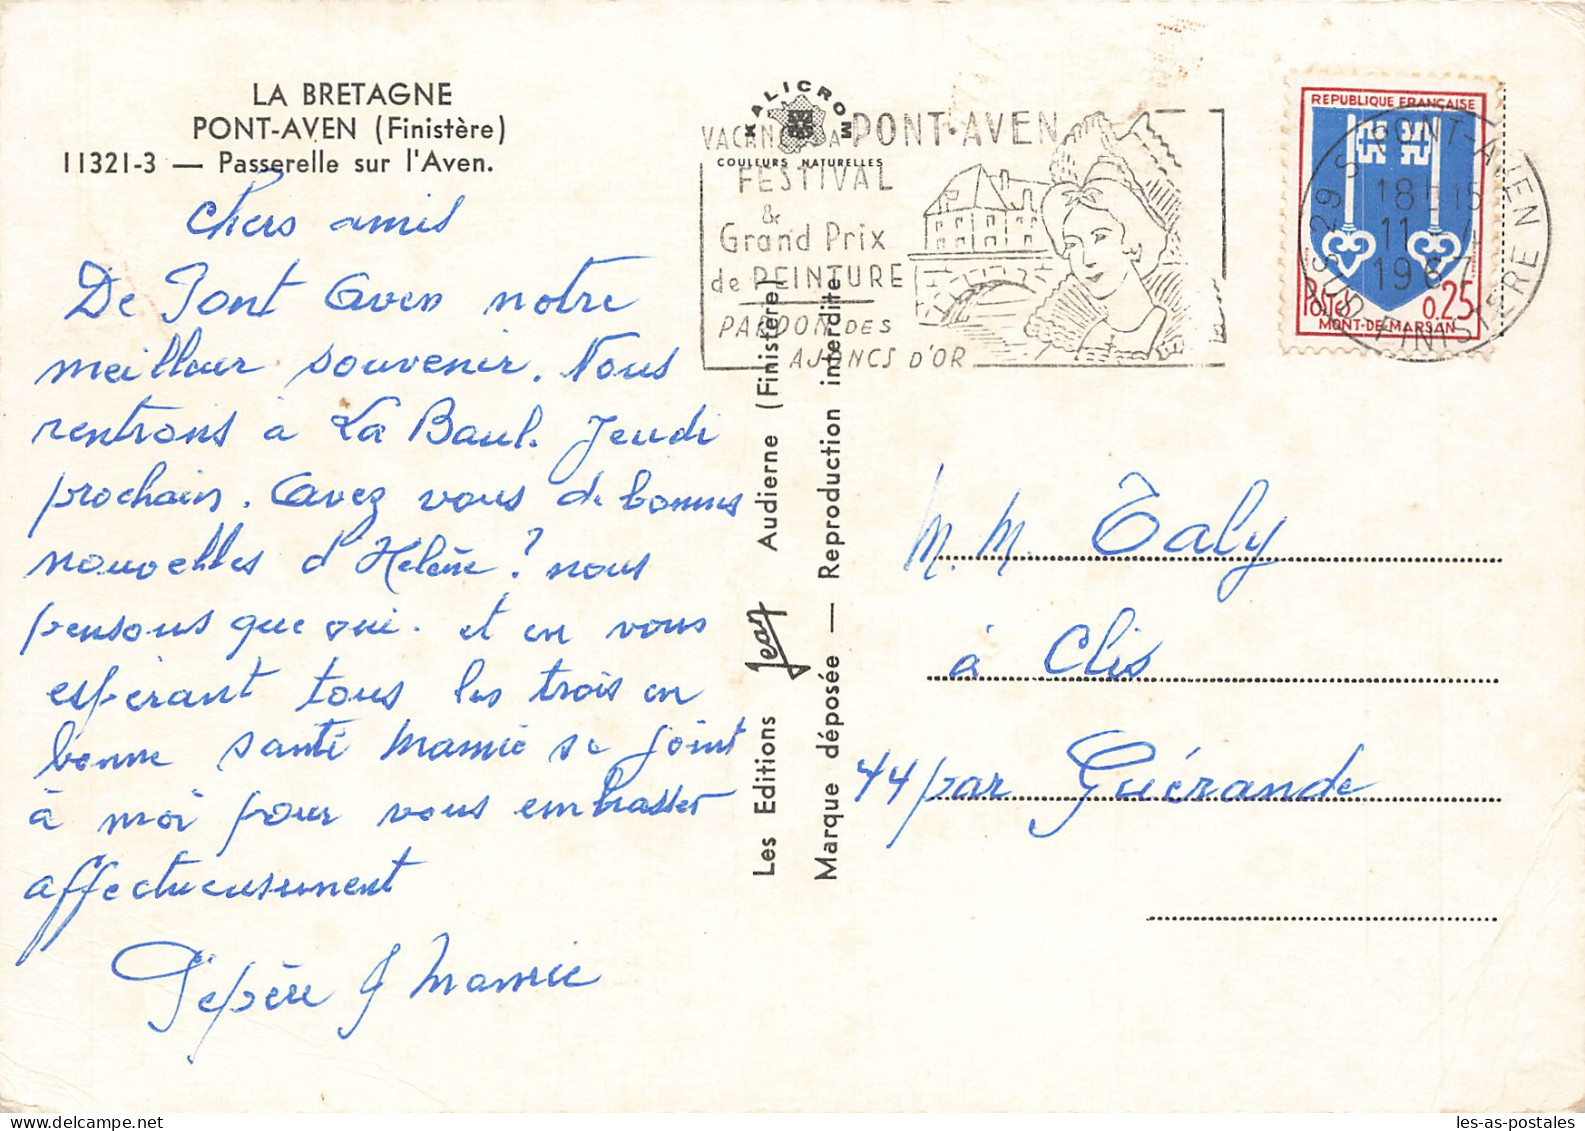 LA BRETAGNE
PONT-AVEN (Finistère)
11321-3 — Passerelle sur l'Aven.
Chers amis
De Pont Aven notre
meilleur souvenir. Nous
rentrons à La Baul. Jeudi
prochain. Avez vous de bonnes
nouvelles d'Helène? nous
pensons que oui. et en vous
espérant tous les trois en
bonne santé Mamie se joint
à moi pour vous embrasser
affectueusement
Pépère & Mamie
KALICROM
COULEURS NATURELLES
PONT-AVEN
FESTIVAL
& Grand Prix
de PEINTURE
PARDON DES
AJONCS D'OR
Les Editions Jean Audierne (Finistère)
Marque déposée — Reproduction interdite
REPUBLIQUE FRANÇAISE
Postes 0,25
MONT-DE-MARSAN
PONT-AVEN
18H15
1967
FINISTERE
M. M. Taly
à Clis
44 par Guérande
les-as-postales